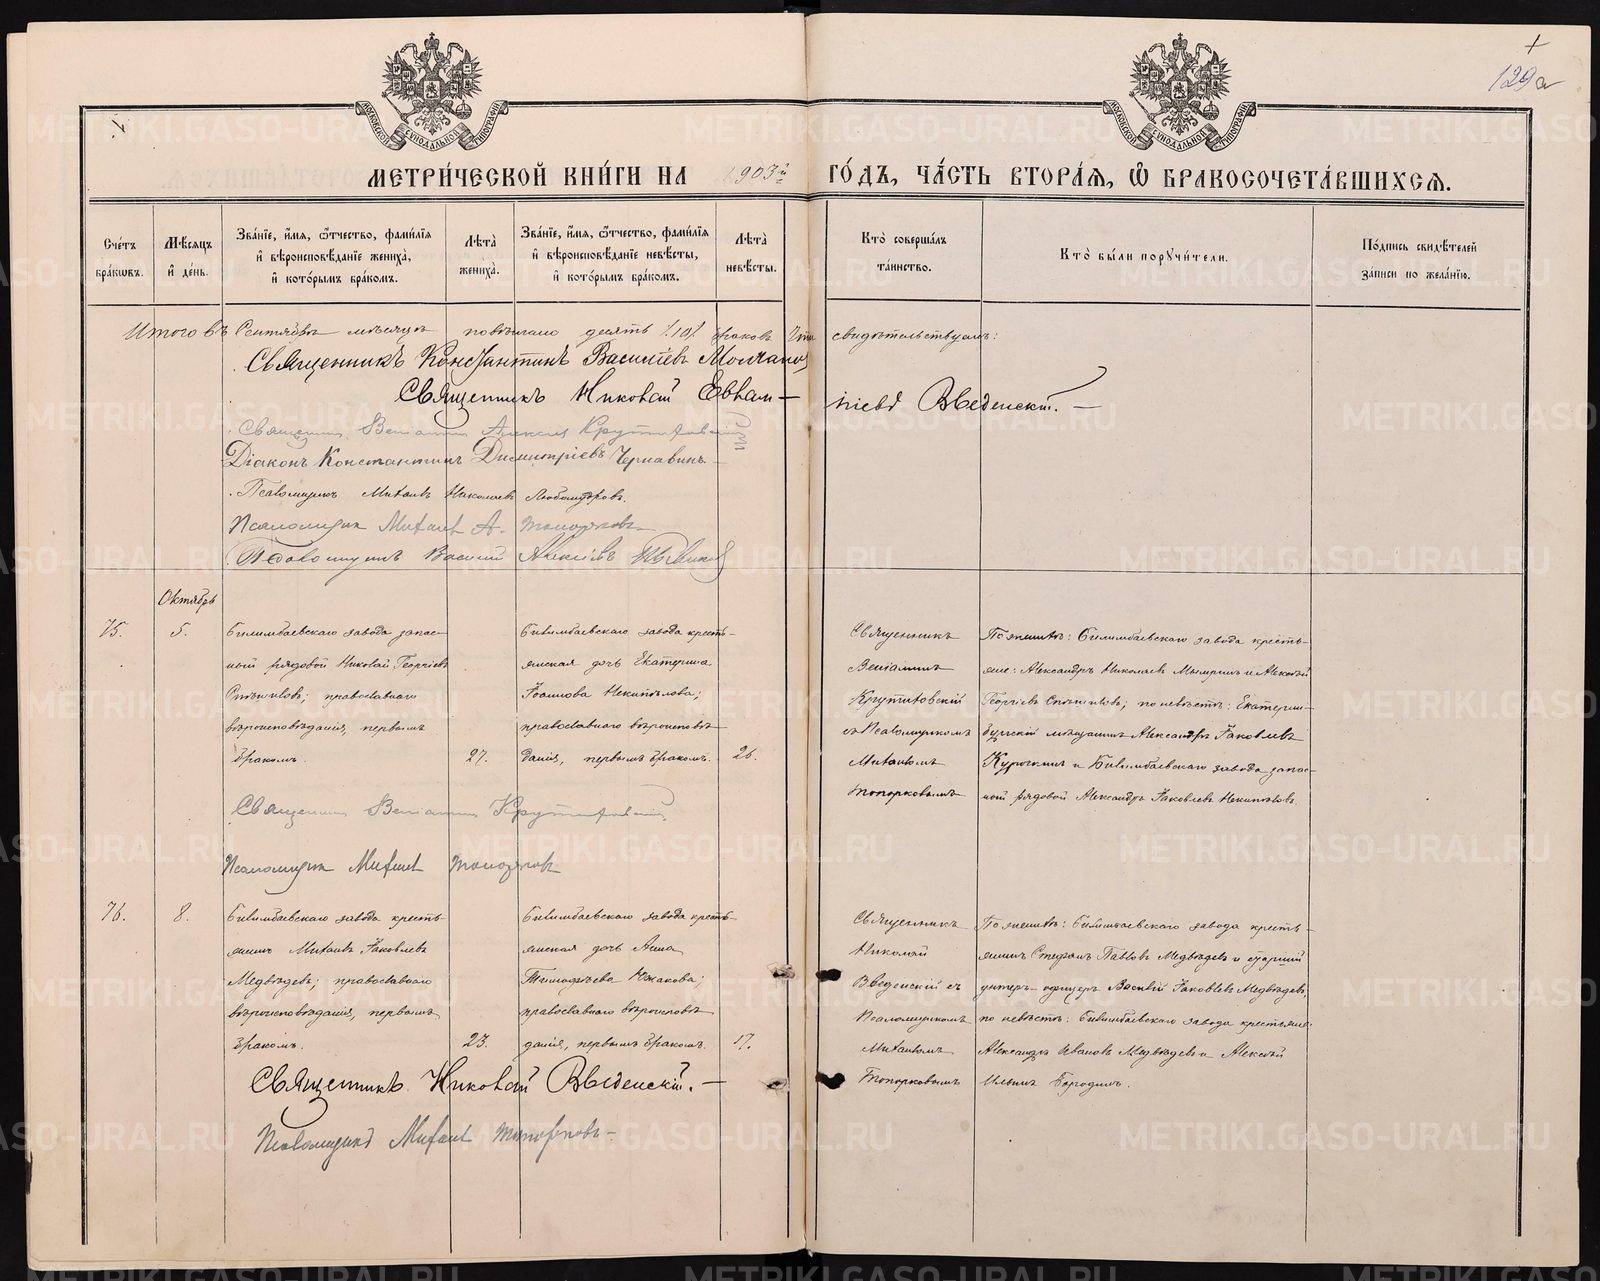 129а
МЕТРИ́ЧЕСКОЙ КНИ́ГИ НА 1903й ГО́ДЪ, ЧА́СТЬ ВТОРА́Я, Ѡ БРАКОСОЧЕТА́ВШИХСЯ.
Сче́тъ бра́кѡвъ.
Мѣ́сяцъ и де́нь.
Зва́нїе, и́мя, ѻ́тчество, фами́лїя и вѣроисповѣ́данїе жениха̀, и кото́рымъ бра́комъ.
Лѣ́та жениха̀.
Зва́нїе, и́мя, ѻ́тчество, фами́лїя и вѣроисповѣ́данїе невѣ́сты, и кото́рымъ бра́комъ.
Лѣ́та невѣ́сты.
Кто̀ соверша́лъ та́инство.
Кто̀ бы́ли поручи́тели.
По́дпись свидѣ́телей за́писи по жела́нїю.
Итого въ Сентябрѣ мѣсяцѣ повѣнчано десять /10/ браковъ Что свидѣтельствуемъ:
Священникъ Константинъ Василіевъ Молчановъ
Священникъ Николай Евѳимiевъ Введенскій.
Священникъ Веніаминъ Алексіевъ Крутиховскій
Діаконъ Константинъ Димитріевъ Чернавинъ
Псаломщикъ Михаилъ Николаевъ Любомудровъ.
Псаломщикъ Михаилъ А. Топорковъ
Псаломщикъ Василій Алексіевъ
Октябрь
75.
5.
Билимбаевскаго завода запас-
ный рядовой Николай Георгіевъ
Ситниковъ; православнаго
вѣроисповѣданія, первымъ
бракомъ.
27.
Билимбаевскаго завода кресть-
янская дочь Екатерина
Іоакимова Некипѣлова;
православнаго вѣроисповѣ-
данія, первымъ бракомъ.
26.
Священникъ
Веніаминъ
Крутиховскій
съ Псаломщикомъ
Михаиломъ
Топорковымъ
По женихѣ: Билимбаевскаго завода кресть-
яне: Александръ Николаевъ и Алексѣй
Георгіевъ Ситниковъ; по невѣстѣ: Екатерин-
бургскій мѣщанинъ Александръ Іаковлевъ
Курочкинъ и Билимбаевскаго завода запас-
ный рядовой Александръ Іаковлевъ Некипѣловъ.
Священникъ Веніаминъ Крутиховскій
Псаломщикъ Михаилъ Топорковъ
76.
8.
Билимбаевскаго завода кресть-
янинъ Михаилъ Іаковлевъ
Медвѣдевъ; православнаго
вѣроисповѣданія, первымъ
бракомъ.
23.
Билимбаевскаго завода кресть-
янская дочь Анна
Тимофѣева Южакова;
православнаго вѣроисповѣ-
данія, первымъ бракомъ.
17.
Священникъ
Николай
Введенскій съ
Псаломщикомъ
Михаиломъ
Топорковымъ
По женихѣ: Билимбаевскаго завода кресть-
янинъ Стефанъ Павловъ Медвѣдевъ и старшій
унтеръ-офицеръ Василій Іаковлевъ Медвѣдевъ,
по невѣстѣ: Билимбаевскаго завода крестьяне
Александръ Ивановъ Медвѣдевъ и Алексѣй
Ильинъ Бородинъ.
Священникъ Николай Введенскій.
Псаломщикъ Михаилъ Топорковъ